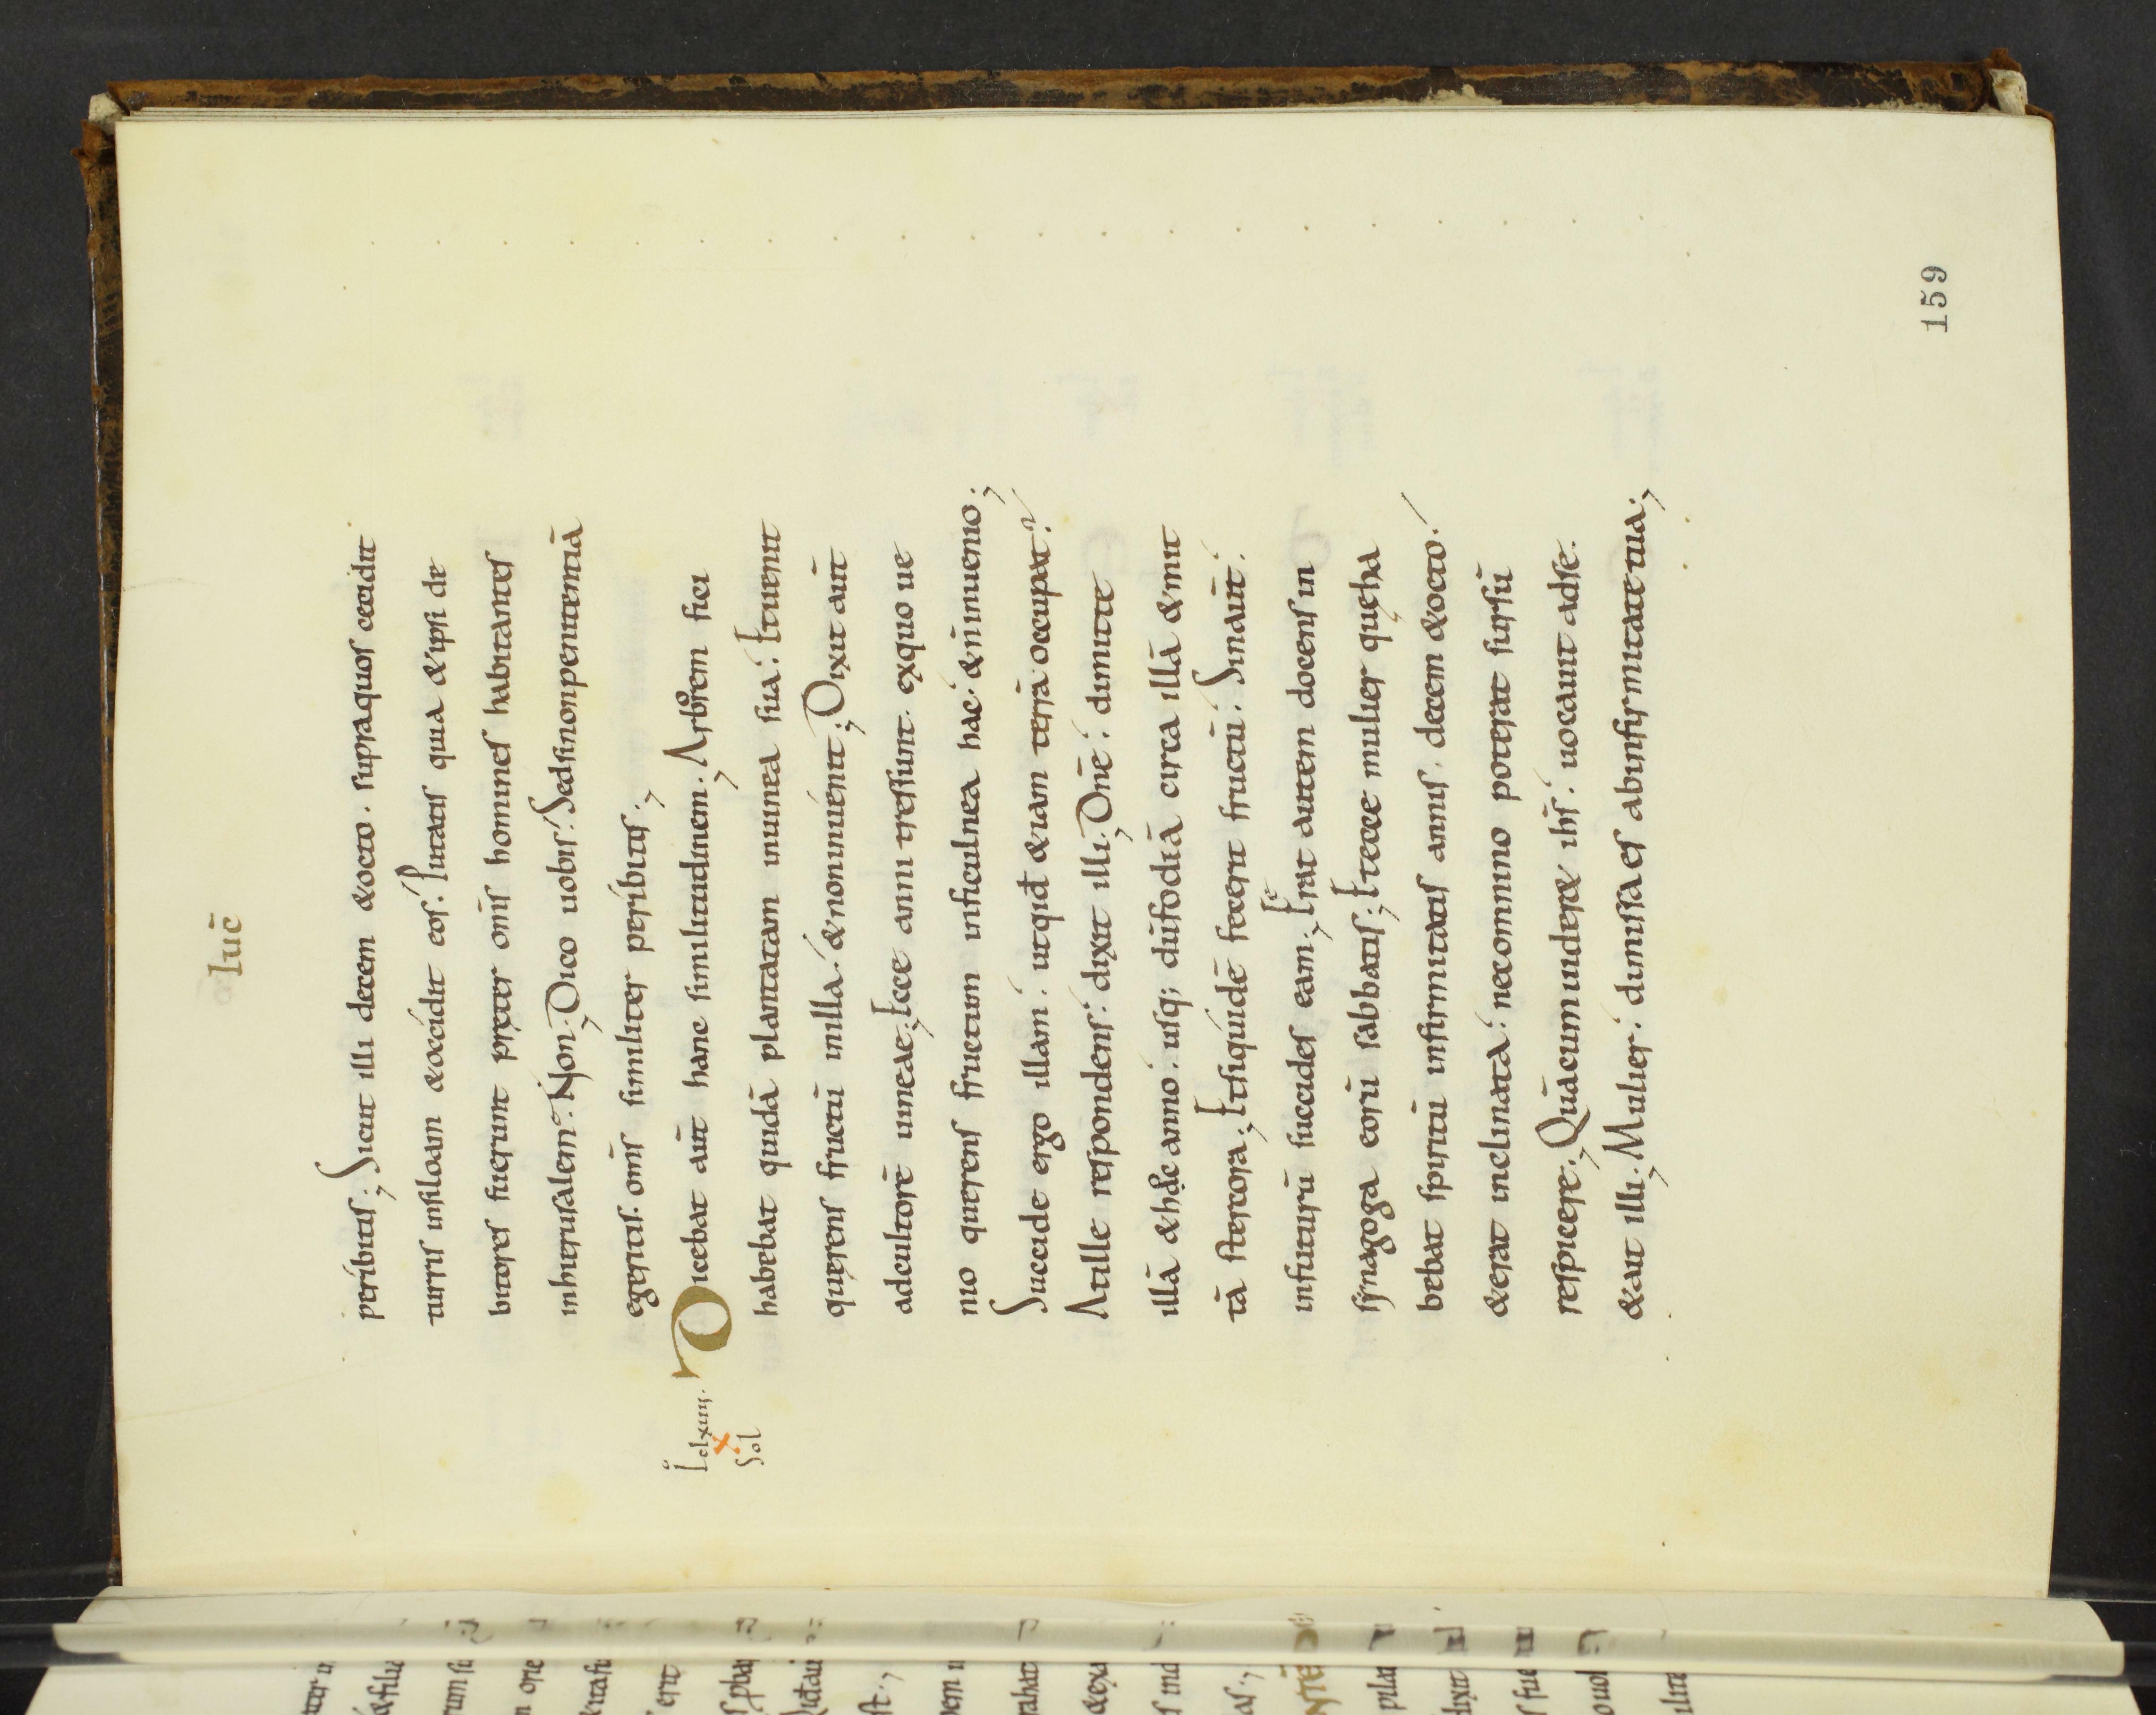 luc̄
peribitis; Sicut illi decem &octo. supraquos cecidit
turris insiloam &occidit eos. Putatis quia &ipsi de
bitores fuerunt pręter om̄s homines habitantes
inhierusalem. Non; Dico uobis. Sedsinonpenitentiā
egeritis. om̄s similiter peribitis;
Dicebat aūt hanc similitudinem; Arborem fici
habebat quidā plantatam inuinea sua. Etuenit
quęrens fructū inilla. &noninuenit; Dixit aūt
adcultorē uineae; Ecce anni tressunt. exquo ue
nio querens fructum inficulnea hac. &n̄inuenio;
Succide ergo illam. utqid &iam terrā occupat?
Atille respondens. dixit illi; Dn̄e. dimitte
illā &hoc anno. usq; dūfodiā circa illā &mit
tā stercora; Etsiquidē fecerit fructū. Sinaūt.
infuturū succides eam; Erat autem docens in
synagoga eorū sabbatis; Etecce mulier quęha
bebat spiritū infirmitatis annis. decem &octo.
&erat inclinata. necomnino poterat sursū
respicere; Quācumuider& ih̄s. uocauit adse.
&ait illi; Mulier. dimissaes abinfirmitate tua;
clxiiii.
x
Sol
159